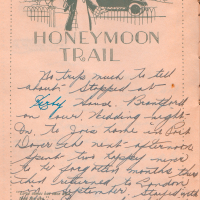 HONEYMOON
TRAIL
No trip much to tell
about. Stopped at
Kirby House Brantford
on our Wedding night
on to Jo's home in Port
Dover Gch next afternoon
spent two happy never
to be forgotten months there
then returned to London
September. stayed with